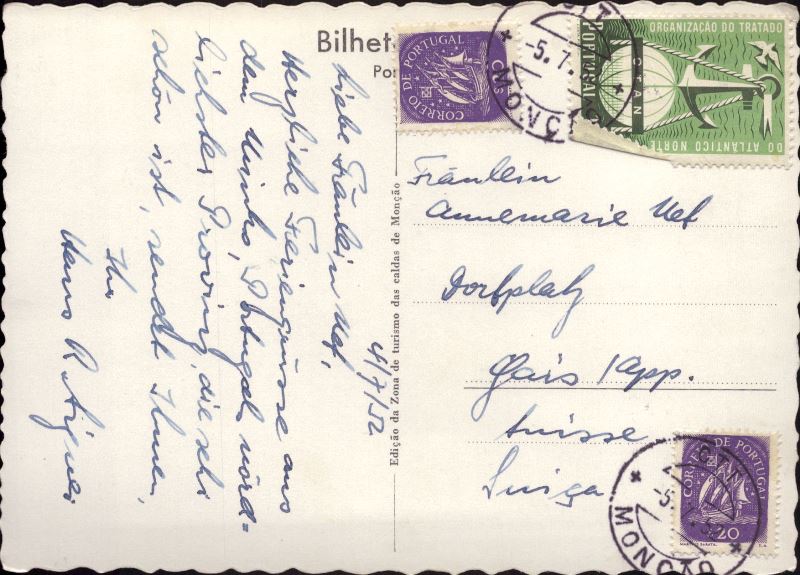 Bilhet
Po
4/7/52
Liebe Fräulein Nef,
Herzliche Feriengrüsse aus
dem Minho, Portugal nörd=
lichster Provinz, die sehr
schön ist, sendet Ihnen,
Ihr
Hans R.
Edição da Zona de turismo das caldas de Monção
CORREIO DE PORTUGAL
CVS
ORGANIZAÇÃO DO TRATADO
DO ATLÂNTICO NORTE
PORTUGAL
OTAN
CTT
-5.7.
MONÇÃO
Fräulein
Annemarie Nef
Dorfplatz
Gais / App.
Suisse
Suiça
CORREIO DE PORTUGAL
20
CTT
-5. 52
MONÇÃO